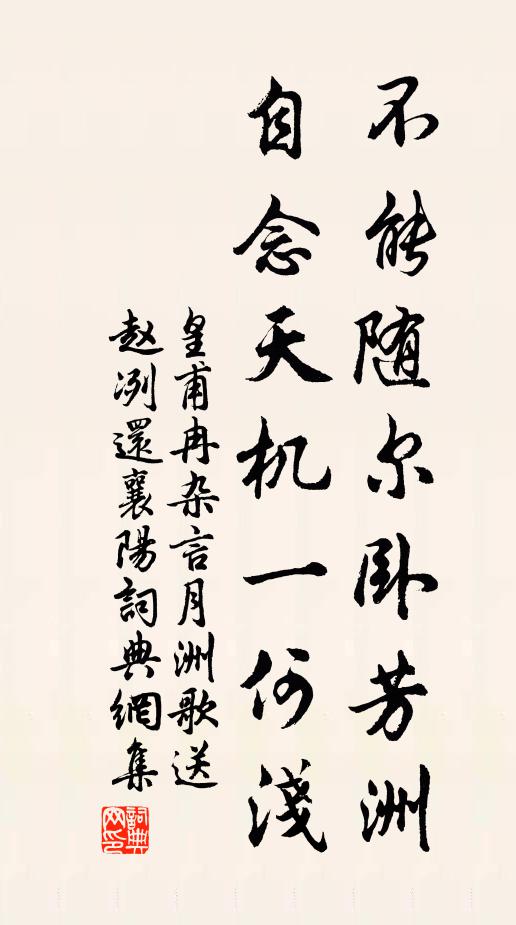 不能随尔卧芳洲
自念天机一何淺
皇甫冉杂言月洲歌送
赵冽還襄陽詞典網集
詞典網印